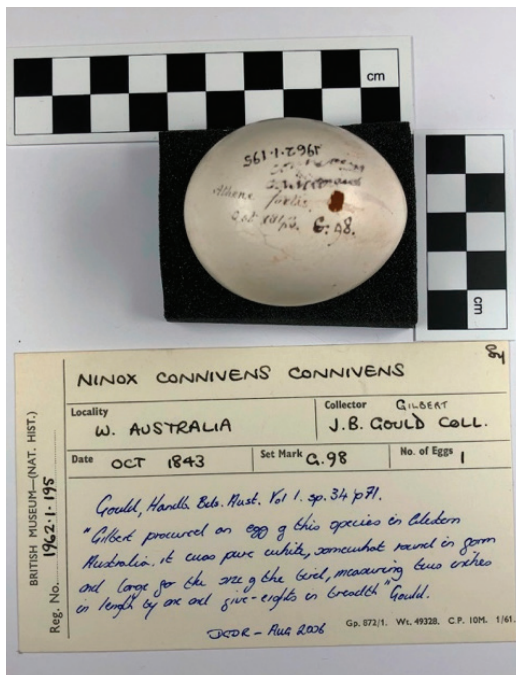 cm
1962·1·195
Athene fortis
Oct
G. 98.
cm
84
NINOX CONNIVENS CONNIVENS
Locality
W. AUSTRALIA
Collector GILBERT
J.B. GOULD COLL.
Date OCT 1843
Set Mark G.98
No. of Eggs 1
BRITISH MUSEUM—(NAT. HIST.)
Reg. No. 1962·1·195
Gould, Handb. Bds. Aust. Vol 1. sp. 34 p71.
"Gilbert procured an egg of this species in Western
Australia. it was pure white, somewhat round in form
and large for the size of the bird, measuring two inches
in length by one and five-eights in breadth" Gould.
Aug 2006
Gp. 872/1. Wt. 49328. C.P. 10M. 1/61.